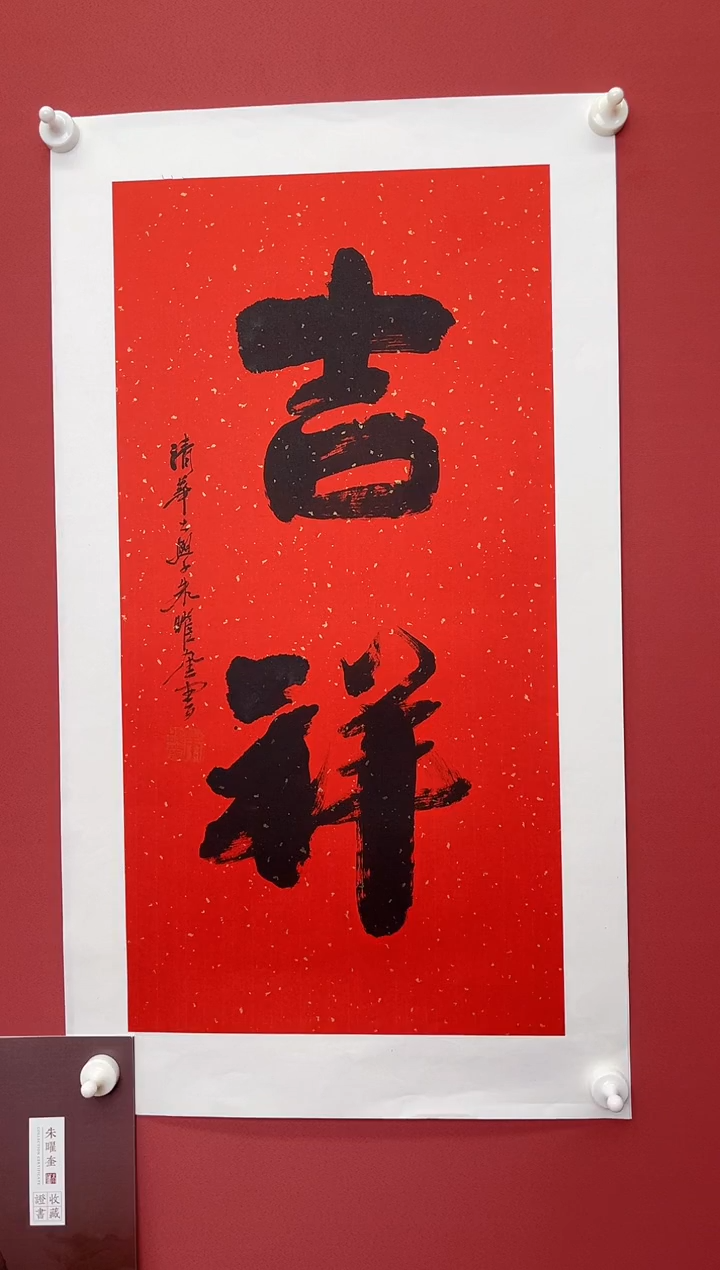 吉祥
清華大學朱曜奎書
朱曜奎
收藏
證書